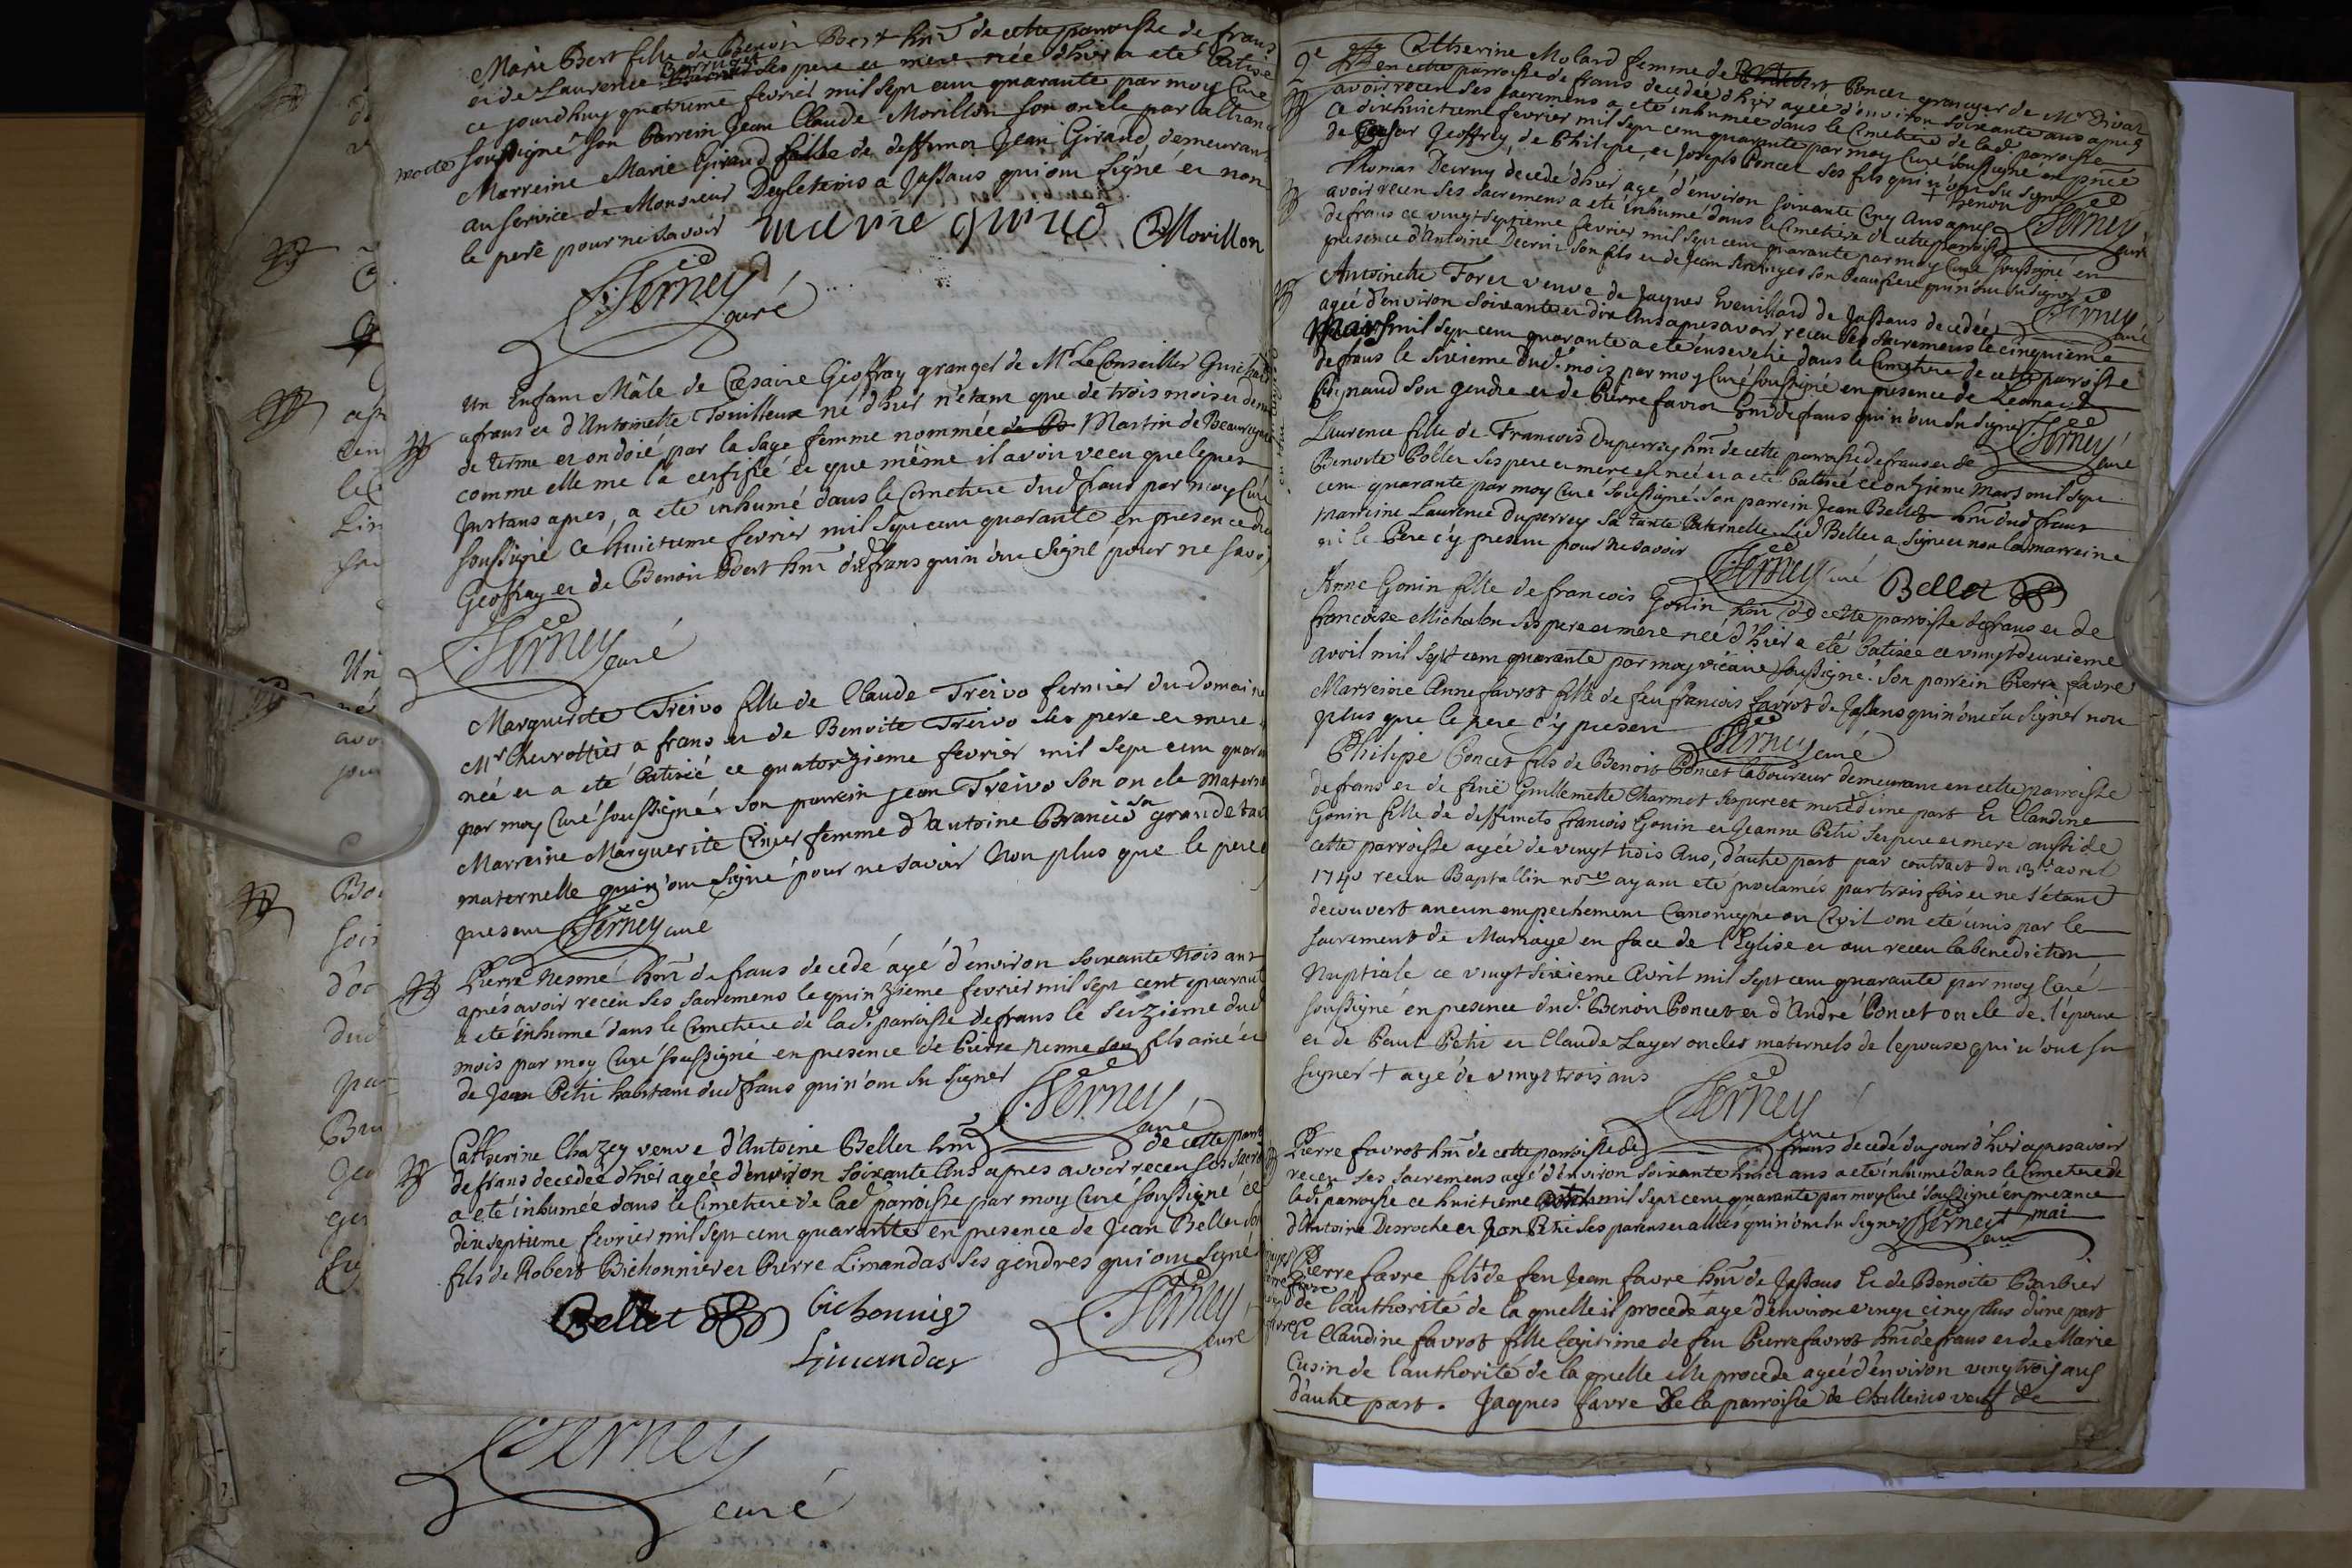 Marie Bert fille de Benoit Bert hnt de cette parroisse de frans
et de Laurence Berruyet ses pere et mere née d'hier a eté batisée
ce jourdhuy quatrieme fevrier mil sept cent quarante par moy Curé
soussigné son Parrein Jean Claude Morillon son oncle par alliance
morte
Marreine Marie Giraud fille de deffunct Jean Giraud, demeurant
au service de Monsieur Degleteins a Jassans qui ont signé et non
le pere pour ne savoir
marie giraud
Morillon
Ferney
curé
Un Enfant Mâle de Cesaire Geoffray granger de Mr Le Conseiller
a frans et d'Antoinette Touilleux né d'hier n'étant que de trois mois et demi
de terme et ondoié par la sage femme nommée Martin de Beauregard
comme elle me l'a certifié et que même il avoit vecu quelques
Instans apres, a eté inhumé dans le Cimetiere dud frans par moy Curé
soussigné Ce huictieme fevrier mil sept cent quarante en presence de
Geoffray et de Benoit Bert hnt dud frans qui n'ont signé pour ne savoir
Ferney curé
Marguerite Treivo fille de Claude Treivo fermier du domaine
Mr Chevrottier a frans et de Benoite Treivo ses pere et mere
née et a eté batisée ce quatorzieme fevrier mil sept cent quarante
par moy Curé soussigné. son parrein jean Treivo son oncle maternel
Marreine Marguerite Ciner femme d'Antoine Brancié sa grande tante
maternelle qui n'ont signé pour ne savoir Non plus que le pere
present Ferney curé
Pierre Nesme hnt de frans decedé agé d'environ soixante trois ans
aprés avoir receu ses sacremens le quinzieme fevrier mil sept cent quarante
a eté inhumé dans le Cimetiere de lad. parroisse de frans le seizieme dud
mois par moy Curé soussigné en presence de Pierre Nesme son fils ainé et
de Jean Petit habitant dud frans qui n'ont su signer
Ferney
curé
Catherine Chazey veuve d'Antoine Bellet hnt de cette parr
de frans decedée d'hier agée d'environ soixante Ans apres avoir receu ses sacre
a eté inhumée dans le Cimetiere de lad parroisse par moy Curé soussigné ce
dixseptieme fevrier mil sept cent quarante en presence de Jean Bellet son
fils de Robert Bichonnier et Pierre Limandas ses gendres qui ont signé
Bellet
bichonnier
Limandas
Ferney
curé
Ferney
curé
2e
Catherine Molard femme de Poncet granger de Mr Divar
en cette parroisse de frans decedée d'hier agée d'environ soixante ans apres
avoir receu ses sacremens a eté inhumée dans le Cimetiere de lad. parroisse
Ce dixhuictieme fevrier mil sept cent quarante par moy Curé soussigné en pnce
de Cesar Geoffray, de Philipe, et Joseph Poncet ses fils qui n'ont su signer
+ benoit
Ferney
curé
Thomas Decruy décédé d'hier agé d'environ soixante Cinq Ans apres
avoir receu ses sacremens a eté inhumé dans le Cimetiere de cette parroisse
de frans ce vingtseptieme fevrier mil sept cent quarante par moy Curé soussigné en
presence d'Antoine Decruy son fils et de Jean son beaufrere qui n'ont su signer
Ferney
curé
Antoinette Foret veuve de Jaques Eveuillard de Jassans decedée
agée d'environ soixante et dix Ans apres avoir receu ses sacremens le cinquieme
Mars mil sept cent quarante a eté ensevelie dans le Cimetiere de cette parroisse
de frans le sixieme dud. mois par moy Curé soussigné en presence de Leonard
son gendre et de Pierre favrot hnt de frans qui n'ont su signer
Ferney
curé
Laurence fille de Francois Duperrey hnt de cette parroisse de frans et de
Benoite Poblet ses pere et mere est née et a eté batisée ce onzieme Mars mil sept
cent quarante par moy Curé soussigné. son parrein Jean Bellet hnt dud frans
Marreine Laurence Duperrey sa tante Paternelle. Led Bellet a signé et non la marreine
ni le Pere c'y present pour ne savoir
Ferney curé
Bellet
Anne Gonin fille de francois Gonin hnt de cette parroisse de frans et de
francoise Michalon ses pere et mere née d'hier a eté batisée ce vingtdeuxieme
avril mil sept cent quarante par moy vicaire soussigné. Son parrein Pierre favre
Marreine Anne favrot fille de feu francois favrot de Jassans qui n'ont su signer non
plus que le pere c'y present
Ferney curé
Philipe Poncet fils de Benoit Poncet laboureur demeurant en cette parroisse
de frans et de feüe Guillemette Charmet ses pere et mere d'une part Et Claudine
Gonin fille de deffuncts francois Gonin et Jeanne Petit ses pere et mere aussi de
cette parroisse agée de vingt trois Ans, d'autre part par contract du 13e avril
1740 receu Baptallin nore ayant eté proclamés par trois fois et ne s'étant
decouvert aucun empechement Canonique ou Civil ont eté unis par le
sacrement de Mariage en face de l'Eglise et ont receu la benediction
Nuptiale ce vingt sixieme Avril mil sept cent quarante par moy Curé
soussigné en presence dud. Benoit Poncet et d'André Poncet oncle de l'époux
et de Paul Petit et Claude Layer oncles maternels de lepouse qui n'ont su
signer + agé de vingt trois ans
Ferney
curé
Pierre favrot hnt de cette parroisse de frans decedé du jour d'hier apres avoir
receu ses sacremens agé d'environ soixante huict ans a eté inhumé dans le Cimetiere de
lad. parroisse ce huictieme mil sept cent quarante par moy Curé soussigné en presence
d'Antoine Desroche et Jean Petit ses parens et alliés qui n'ont su signer Ferney + mai
curé
Pierre favre fils de feu Jean favre hnt de Jassans Et de Benoite Barbier
de l'authorité de laquelle il procede agé d'environ vingt cinq Ans d'une part
Et Claudine favrot fille legitime de feu Pierre favrot hnt de frans et de Marie
Cusin de l'authorité de laquelle elle procede agée d'environ vingt trois ans
d'autre part. Jaques favre De la parroisse de Chilleins veuf de